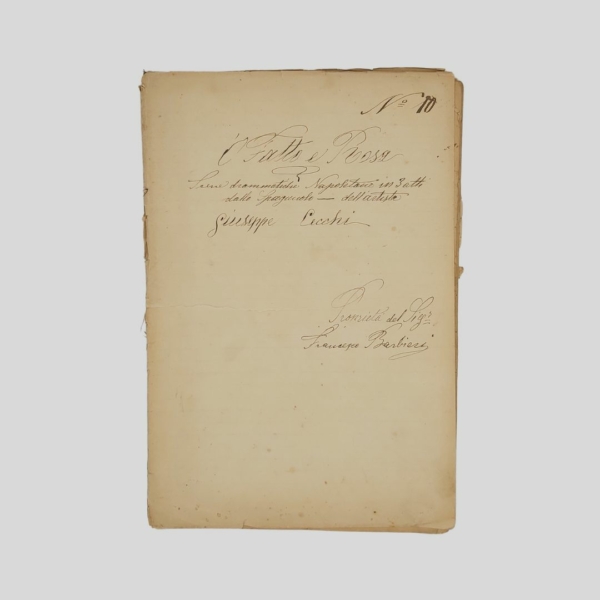 Nº 10
'O Fatto 'e Rosa
Scene drammatiche Napoletane in 3 atti
dallo spagnuolo — dell'artista
Giuseppe Cecchi
Proprietà del Sigr
Francesco Barbieri